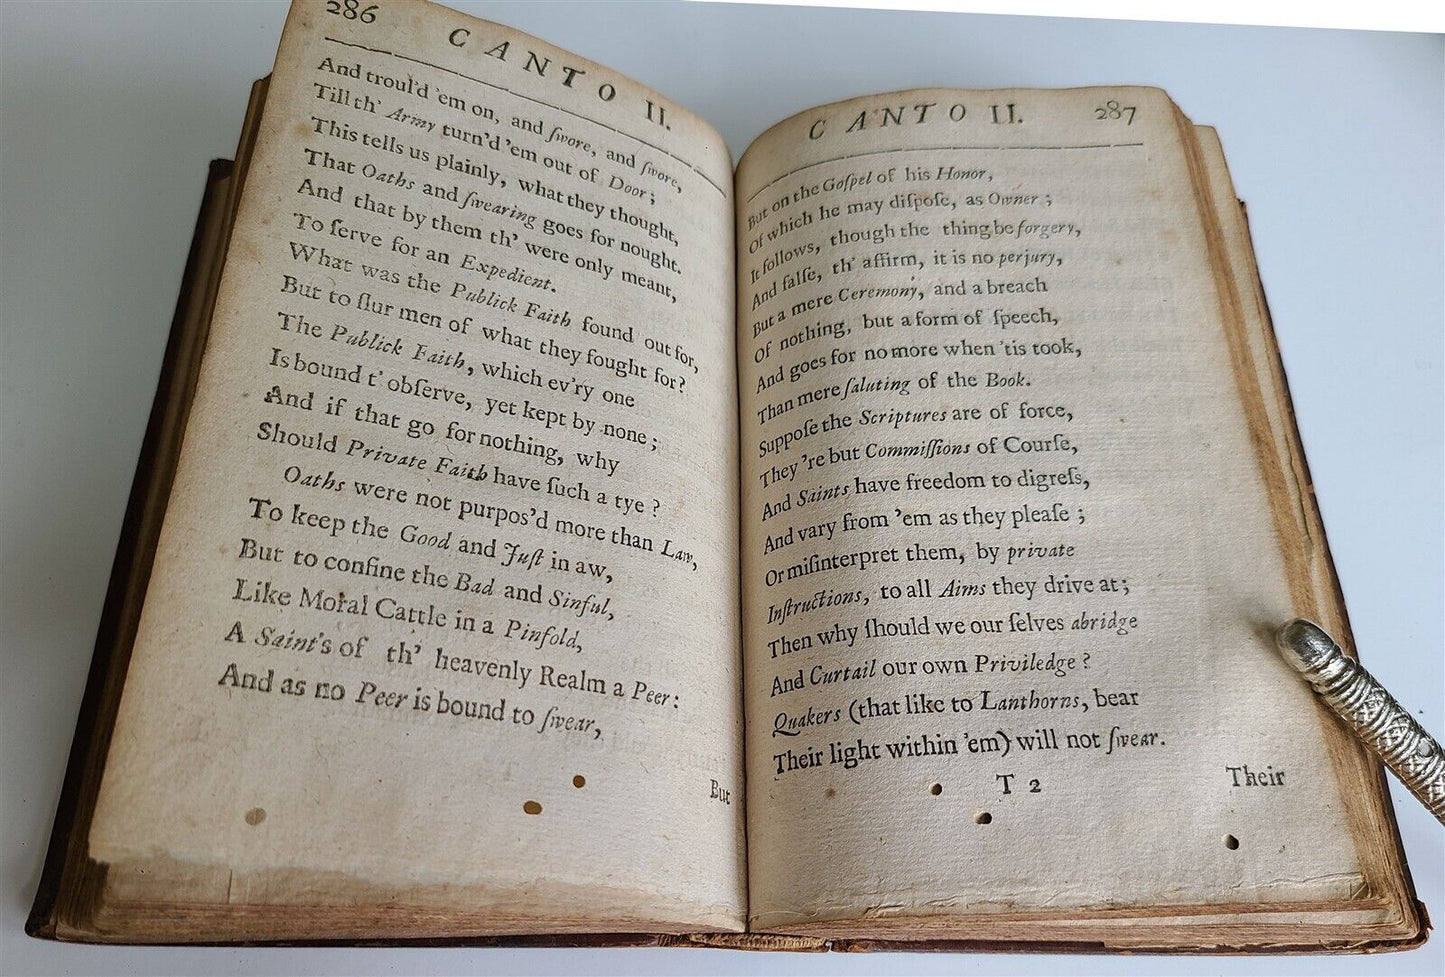 286
CANTO II.
And troul'd 'em on, and ſwore, and ſwore,
Till th' Army turn'd 'em out of Door;
This tells us plainly, what they thought,
That Oaths and ſwearing goes for nought.
And that by them th' were only meant,
To ſerve for an Expedient.
What was the Publick Faith found out for,
But to ſlur men of what they fought for?
The Publick Faith, which ev'ry one
Is bound t' obſerve, yet kept by none;
And if that go for nothing, why
Should Private Faith have ſuch a tye?
Oaths were not purpos'd more than Law,
To keep the Good and Juſt in aw,
But to confine the Bad and Sinful,
Like Moral Cattle in a Pinfold,
A Saint's of th' heavenly Realm a Peer:
And as no Peer is bound to ſwear,
But
CANTO II.
287
But on the Goſpel of his Honor,
Of which he may diſpoſe, as Owner;
It follows, though the thing be forgery,
And falſe, th' affirm, it is no perjury,
But a mere Ceremony, and a breach
Of nothing, but a form of ſpeech,
And goes for no more when 'tis took,
Than mere ſaluting of the Book.
Suppoſe the Scriptures are of force,
They 're but Commiſſions of Courſe,
And Saints have freedom to digreſs,
And vary from 'em as they pleaſe;
Or miſinterpret them, by private
Inſtructions, to all Aims they drive at;
Then why ſhould we our ſelves abridge
And Curtail our own Priviledge?
Quakers (that like to Lanthorns, bear
Their light within 'em) will not ſwear.
T 2
Their